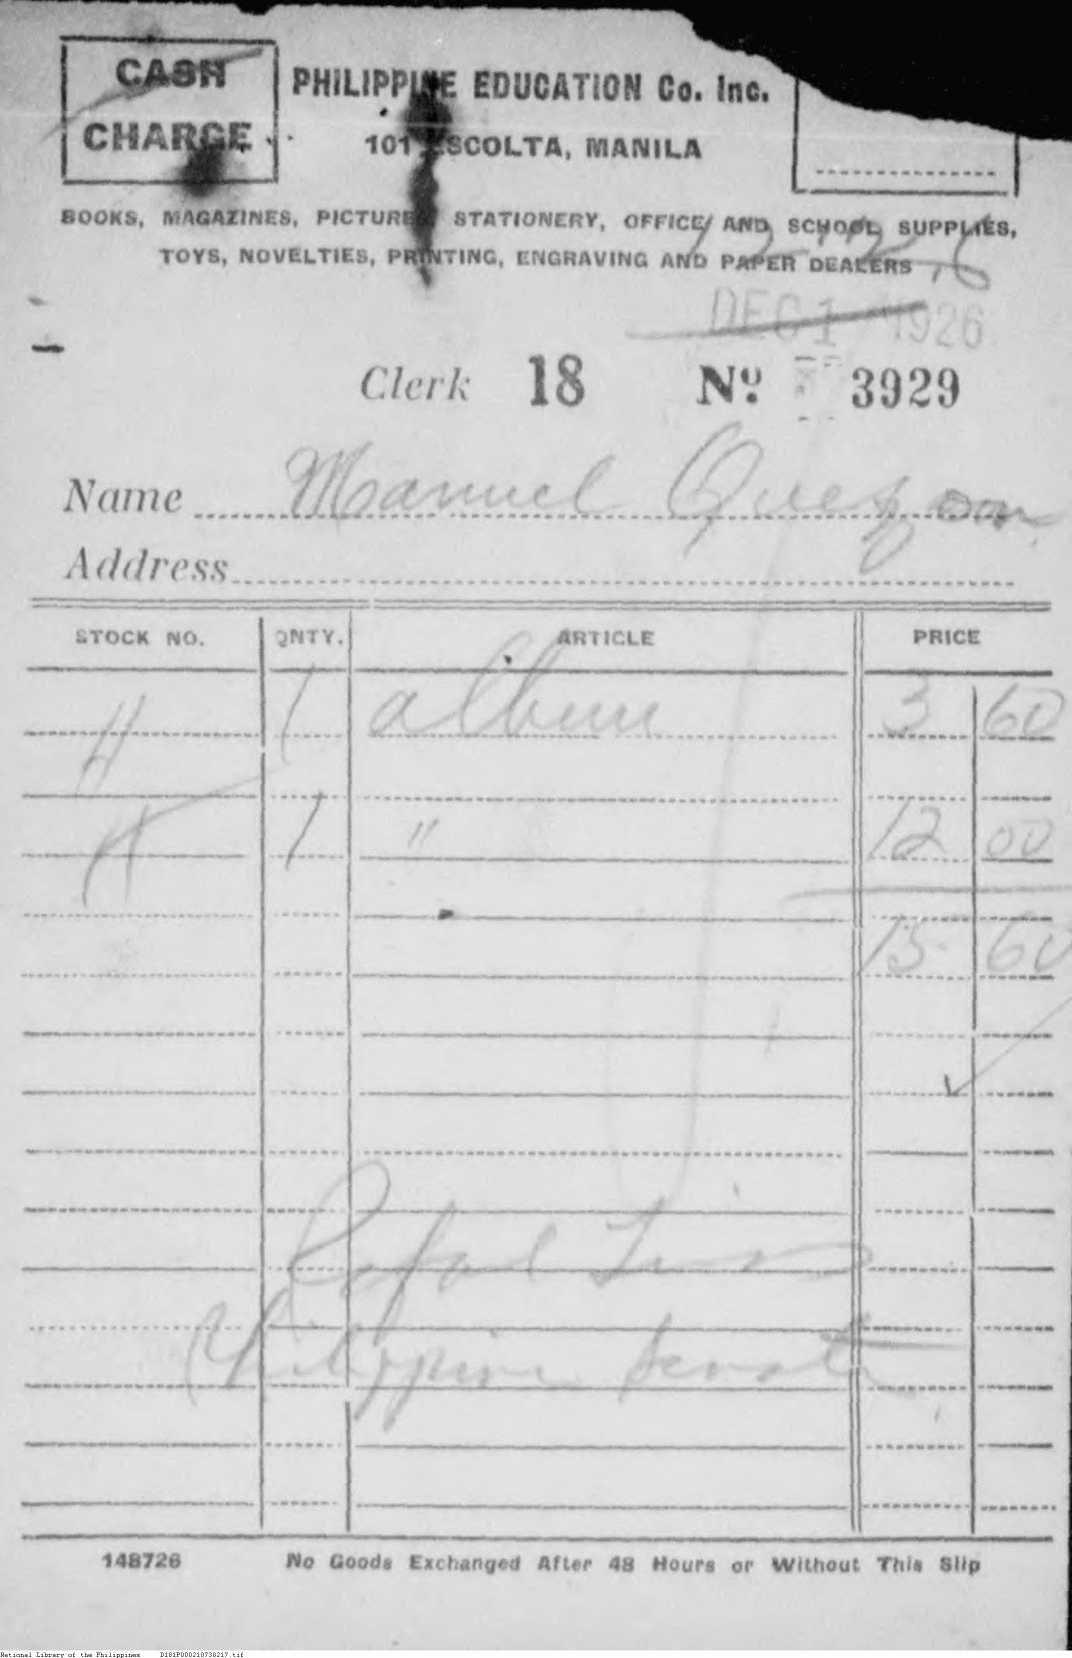 CASH
CHARGE
PHILIPPINE EDUCATION Co. Inc.
101 ESCOLTA, MANILA
BOOKS, MAGAZINES, PICTURES, STATIONERY, OFFICE AND SCHOOL SUPPLIES,
TOYS, NOVELTIES, PRINTING, ENGRAVING AND PAPER DEALERS
DEC 1 1926
Clerk 18 No. 3929
Name Manuel Quezon
Address
STOCK NO. QNTY. ARTICLE PRICE
H 1 album 3 60
H 1 " 12 00
15 60
Philippine Senate
148726 No Goods Exchanged After 48 Hours or Without This Slip
National Library of the Philippines D181P000210738217.tif